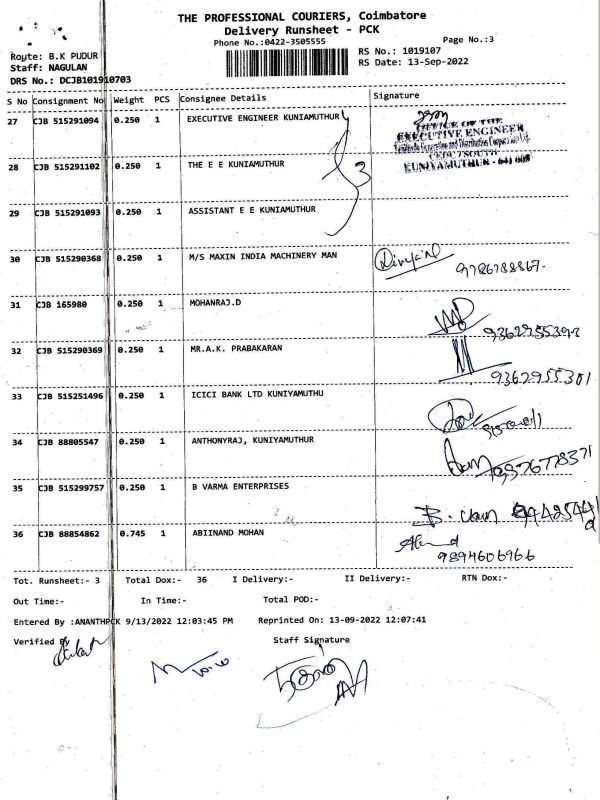 THE PROFESSIONAL COURIERS, Coimbatore
Delivery Runsheet - PCK
Phone No.:0422-3505555
Page No.:3
Route: B.K PUDUR
RS No.: 1019107
Staff: NAGULAN
RS Date: 13-Sep-2022
DRS No.: DCJB101910703
S No Consignment No Weight PCS Consignee Details Signature
27 CJB 515291094 0.250 1 EXECUTIVE ENGINEER KUNIAMUTHUR
OFFICE OF THE
EXECUTIVE ENGINEER
KUNIYAMUTHUR - 641 008
28 CJB 515291102 0.250 1 THE E E KUNIAMUTHUR
3
29 CJB 515291093 0.250 1 ASSISTANT E E KUNIAMUTHUR
30 CJB 515290368 0.250 1 M/S MAXIN INDIA MACHINERY MAN
31 CJB 165980 0.250 1 MOHANRAJ.D
32 CJB 515290369 0.250 1 MR.A.K. PRABAKARAN
9362955301
33 CJB 515251496 0.250 1 ICICI BANK LTD KUNIYAMUTHU
34 CJB 88805547 0.250 1 ANTHONYRAJ, KUNIYAMUTHUR
35 CJB 515299757 0.250 1 B VARMA ENTERPRISES
36 CJB 88854862 0.745 1 ABIINAND MOHAN
9894606966
Tot. Runsheet:- 3 Total Dox:- 36 I Delivery:- II Delivery:- RTN Dox:-
Out Time:- In Time:- Total POD:-
Entered By :ANANTHPCK 9/13/2022 12:03:45 PM Reprinted On: 13-09-2022 12:07:41
Verified By
Staff Signature